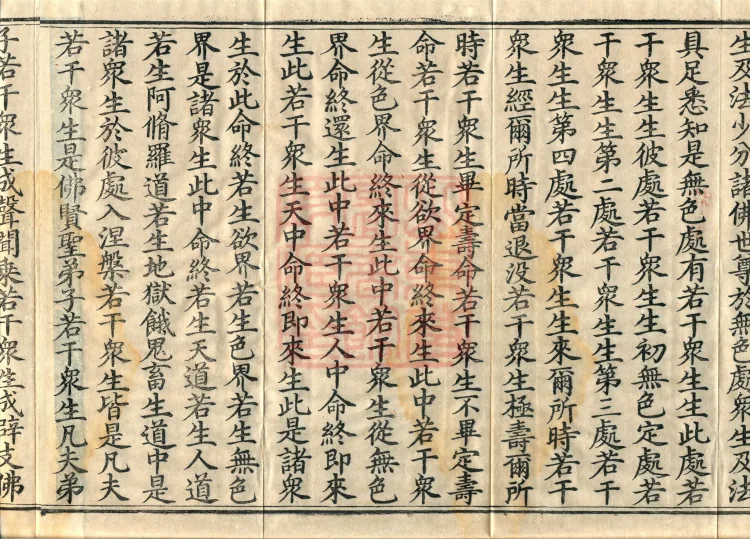 生及法少分諸佛世尊於無色處衆生及法
具足悉知是無色處有若干衆生生此處若
干衆生生彼處若干衆生生初無色定處若
干衆生生第二處若干衆生生第三處若干
衆生生第四處若干衆生生來爾所時若干
衆生經爾所時當退没若干衆生極壽爾所
時若干衆生畢定壽命若干衆生不畢定壽
命若干衆生從欲界命終來生此中若干衆
生從色界命終來生此中若干衆生從無色
界命終還生此中若干衆生人中命終即來
生此若干衆生天中命終即來生此是諸衆
生於此命終若生欲界若生色界若生無色
界是諸衆生此中命終若生天道若生人道
若生阿脩羅道若生地獄餓鬼畜生道中是
諸衆生於彼處入涅槃若干衆生皆是凡夫
若干衆生是佛賢聖弟子若干衆生凡夫弟
子若干衆生成聲聞乘若干衆生成辟支佛